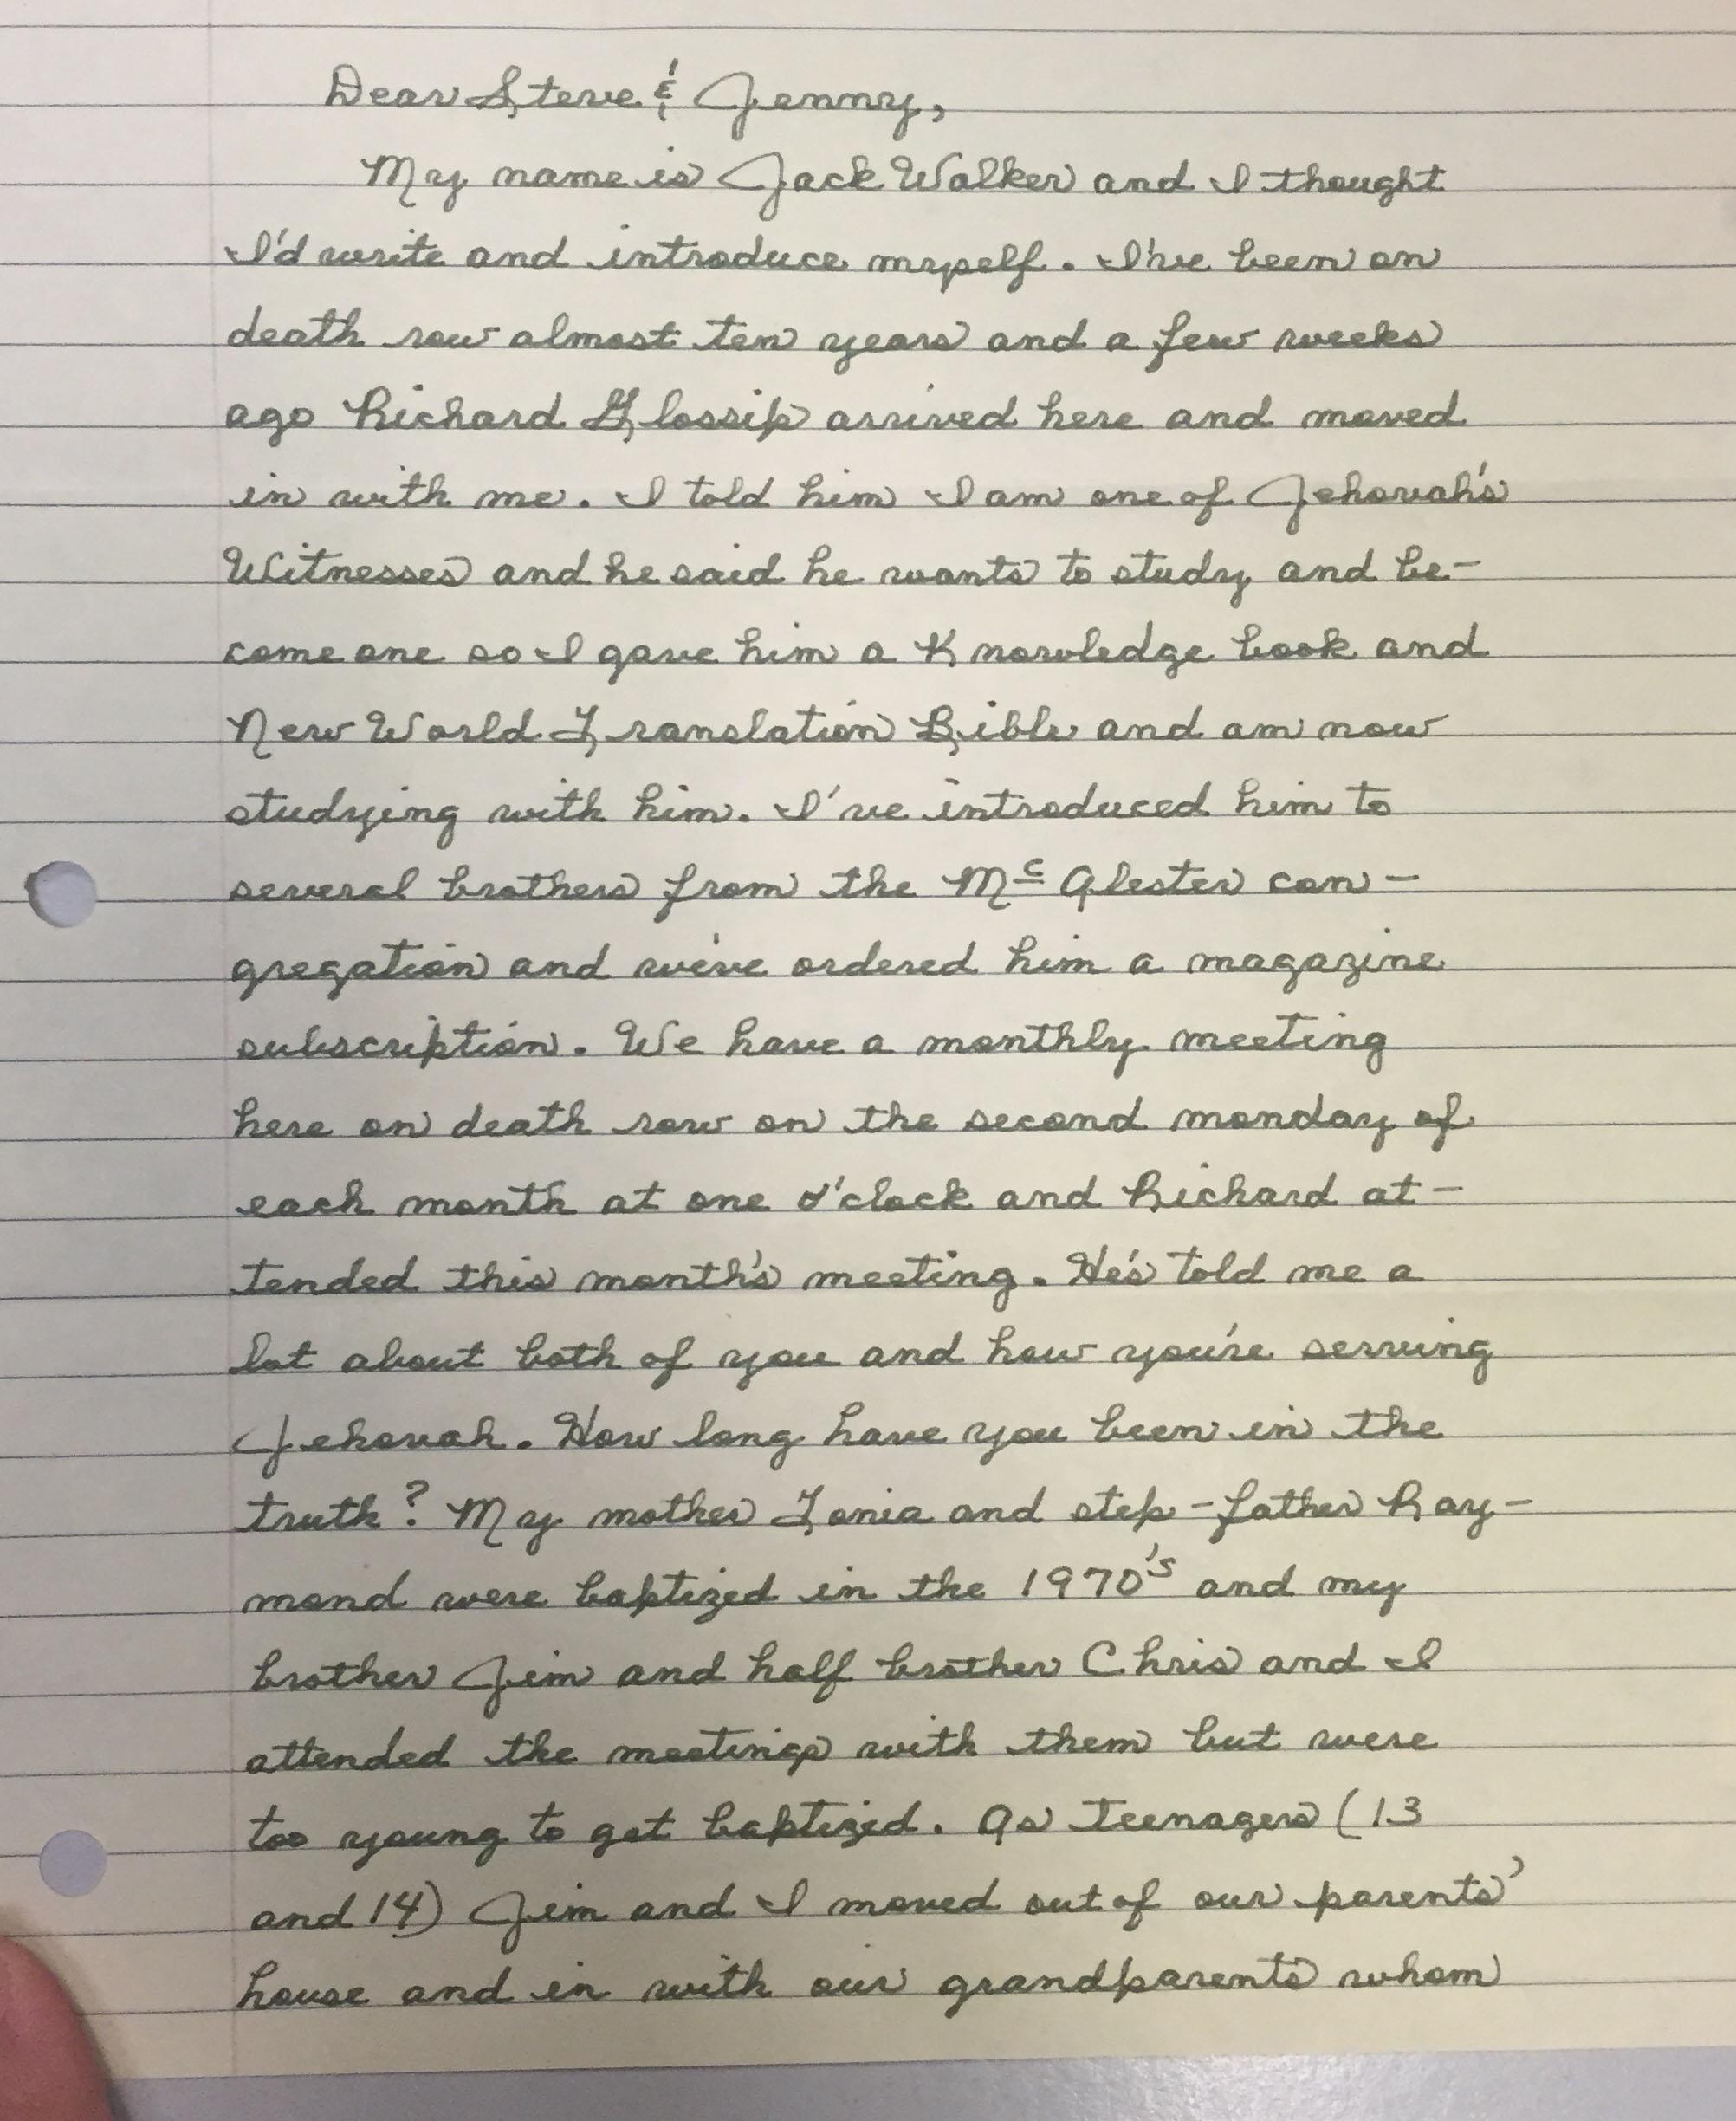 Dear Steve & Jenny,
My name is Jack Walker and I thought
I'd write and introduce myself. I've been on
death row almost ten years and a few weeks
ago Richard Glossip arrived here and moved
in with me. I told him I am one of Jehovah's
Witnesses and he said he wants to study and be-
come one so I gave him a Knowledge book and
New World Translation Bible and am now
studying with him. I've introduced him to
several brothers from the McAlester con-
gregation and we've ordered him a magazine
subscription. We have a monthly meeting
here on death row on the second monday of
each month at one o'clock and Richard at-
tended this month's meeting. He's told me a
lot about both of you and how you're serving
Jehovah. How long have you been in the
truth? My mother Tonia and step-father Ray-
mond were baptized in the 1970's and my
brother Jim and half brother Chris and I
attended the meetings with them but were
too young to get baptized. As teenagers (13
and 14) Jim and I moved out of our parents'
house and in with our grandparents whom